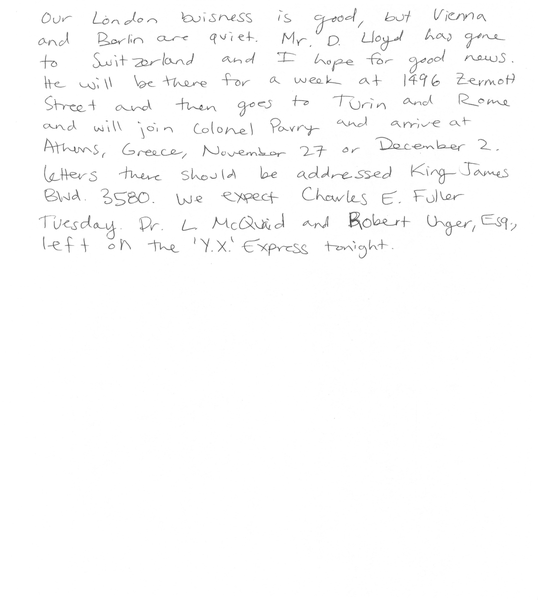 Our London buisness is good, but Vienna
and Berlin are quiet. Mr. D. Lloyd has gone
to Switzerland and I hope for good news.
He will be there for a week at 1496 Zermott
Street and then goes to Turin and Rome
and will join Colonel Parry and arrive at
Athens, Greece, November 27 or December 2.
Letters there should be addressed King James
Blvd. 3580. We expect Charles E. Fuller
Tuesday. Dr. L McQuaid and Robert Unger, Esq.,
left on the 'Y.X.' Express tonight.